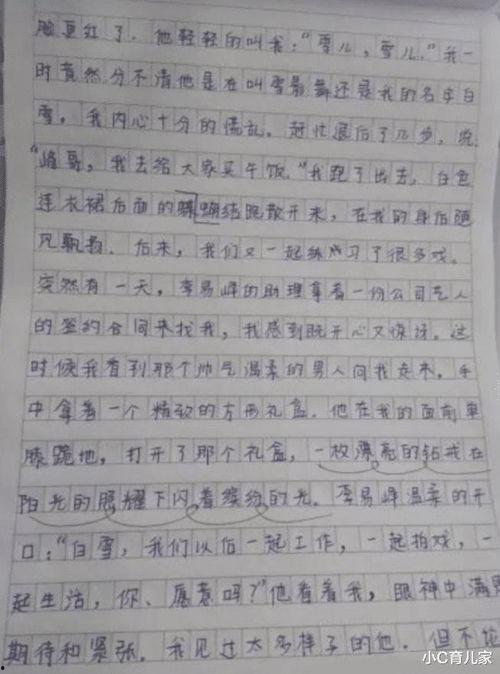 脸更红了。他轻轻的叫我:“雪儿,雪儿.”我一
时竟然分不清他是在叫雪最舞还是我的名字白
雪。我内心十分的慌乱。赶忙退后了几步,说
“峰哥,我去给大家买午饭.”我跑了出去,白色
连衣裙后面的蝴蝶结跑散开来,在我的身后随
风飘扬.后来,我们又一起练习了很多戏。
突然有一天,李易峰的助理拿着一份公司艺人
的签约合同来找我,我感到既开心又惊讶。这
时候我看到那个帅气温柔的男人向我走来,手
中拿着一个精致的方形礼盒.他在我的面前单
膝跪地,打开了那个礼盒,一枚漂亮的钻戒在
阳光的照耀下闪着缤纷的光.李易峰温柔的开
口:“白雪,我们以后一起工作,一起拍戏,一
起生活,你、愿意吗?”他看着我,眼神中满是
期待和紧张。我见过太多样子的他.但不论
小C育儿家